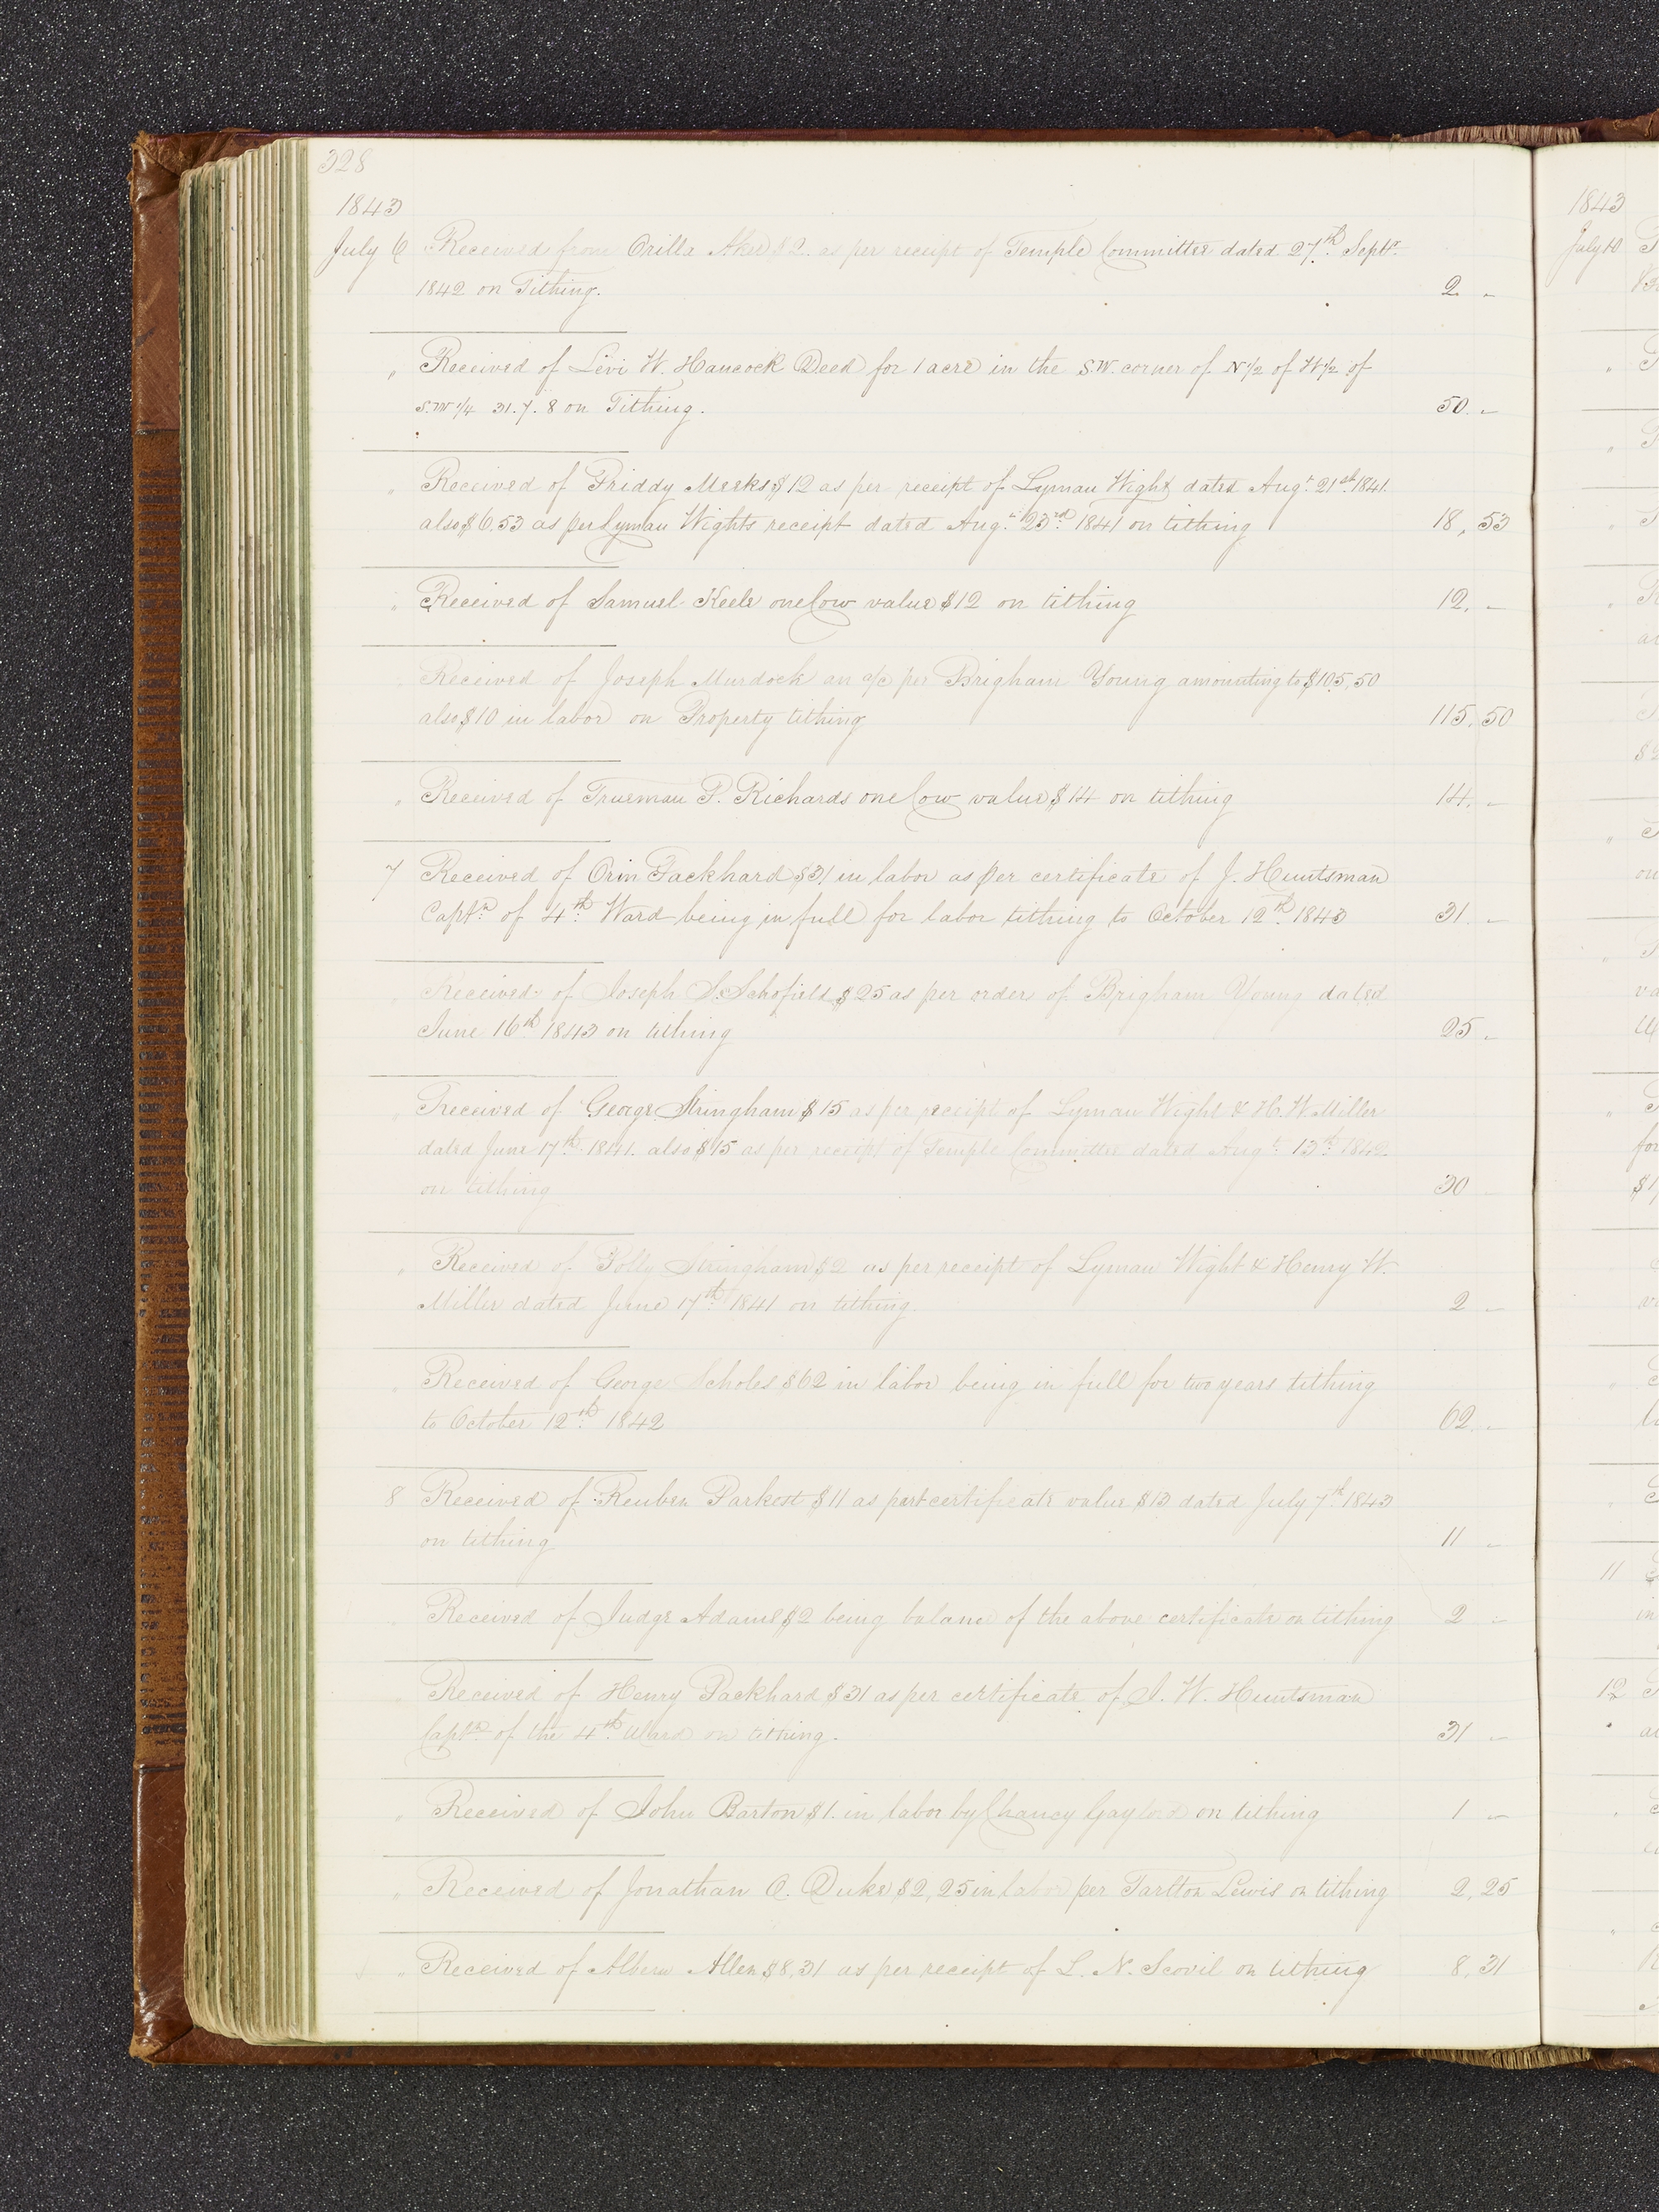 328
1843
July 6 Received from Orilla Aker $2. as per receipt of Temple Committee dated 27th Septr.
1842 on Tithing. 2 -
" Received of Levi W. Hancock Deed for 1 acre in the S.W. corner of N 1/2 of W 1/2 of
S.W 1/4 31. 7. 8 on Tithing. 50. -
" Received of Priddy Meeks $12 as per receipt of Lyman Wight dated Augt. 21st 1841.
also $6.53 as per Lyman Wights receipt dated Augt. 23rd 1841 on tithing 18, 53
" Received of Samuel Keele one Cow value $12 on tithing 12. -
" Received of Joseph Murdock an a/c per Brigham Young amounting to $105,50
also $10 in labor on Property tithing 115. 50
" Received of Trueman P. Richards one Cow value $14 on tithing 14. -
7 Received of Orin Packhard $31 in labor as per certificate of J. Huntsman
Captn. of 4th Ward being in full for labor tithing to October 12th 1843 31. -
" Received of Joseph S. Schofield $25 as per order of Brigham Young dated
June 16th 1843 on tithing 25 -
" Received of George Stringham $15 as per receipt of Lyman Wight & H. W. Miller
dated June 17th 1841. also $15 as per receipt of Temple Committee dated Augt. 13th 1842.
on tithing 30 -
" Received of Polly Stringham $2 as per receipt of Lyman Wight & Henry W.
Miller dated June 17th 1841 on tithing. 2 -
" Received of George Scholes $62 in labor being in full for two years tithing
to October 12th 1842 62. -
8 Received of Reuben Parkest $11 as part certificate value $13 dated July 7th 1843
on tithing 11 -
" Received of Judge Adams $2 being balance of the above certificate on tithing 2 -
" Received of Henry Packhard $31 as per certificate of J. W. Huntsman
Captn. of the 4th Ward on tithing. 31 -
" Received of John Barton $1. in labor by Chancy Gaylord on tithing 1 -
" Received of Jonathan O. Duke $2,25 in labor per Tarlton Lewis on tithing 2, 25
" Received of Albern Allen $8,31 as per receipt of L. N. Scovil on tithing 8, 31
1843
July 10
11
12